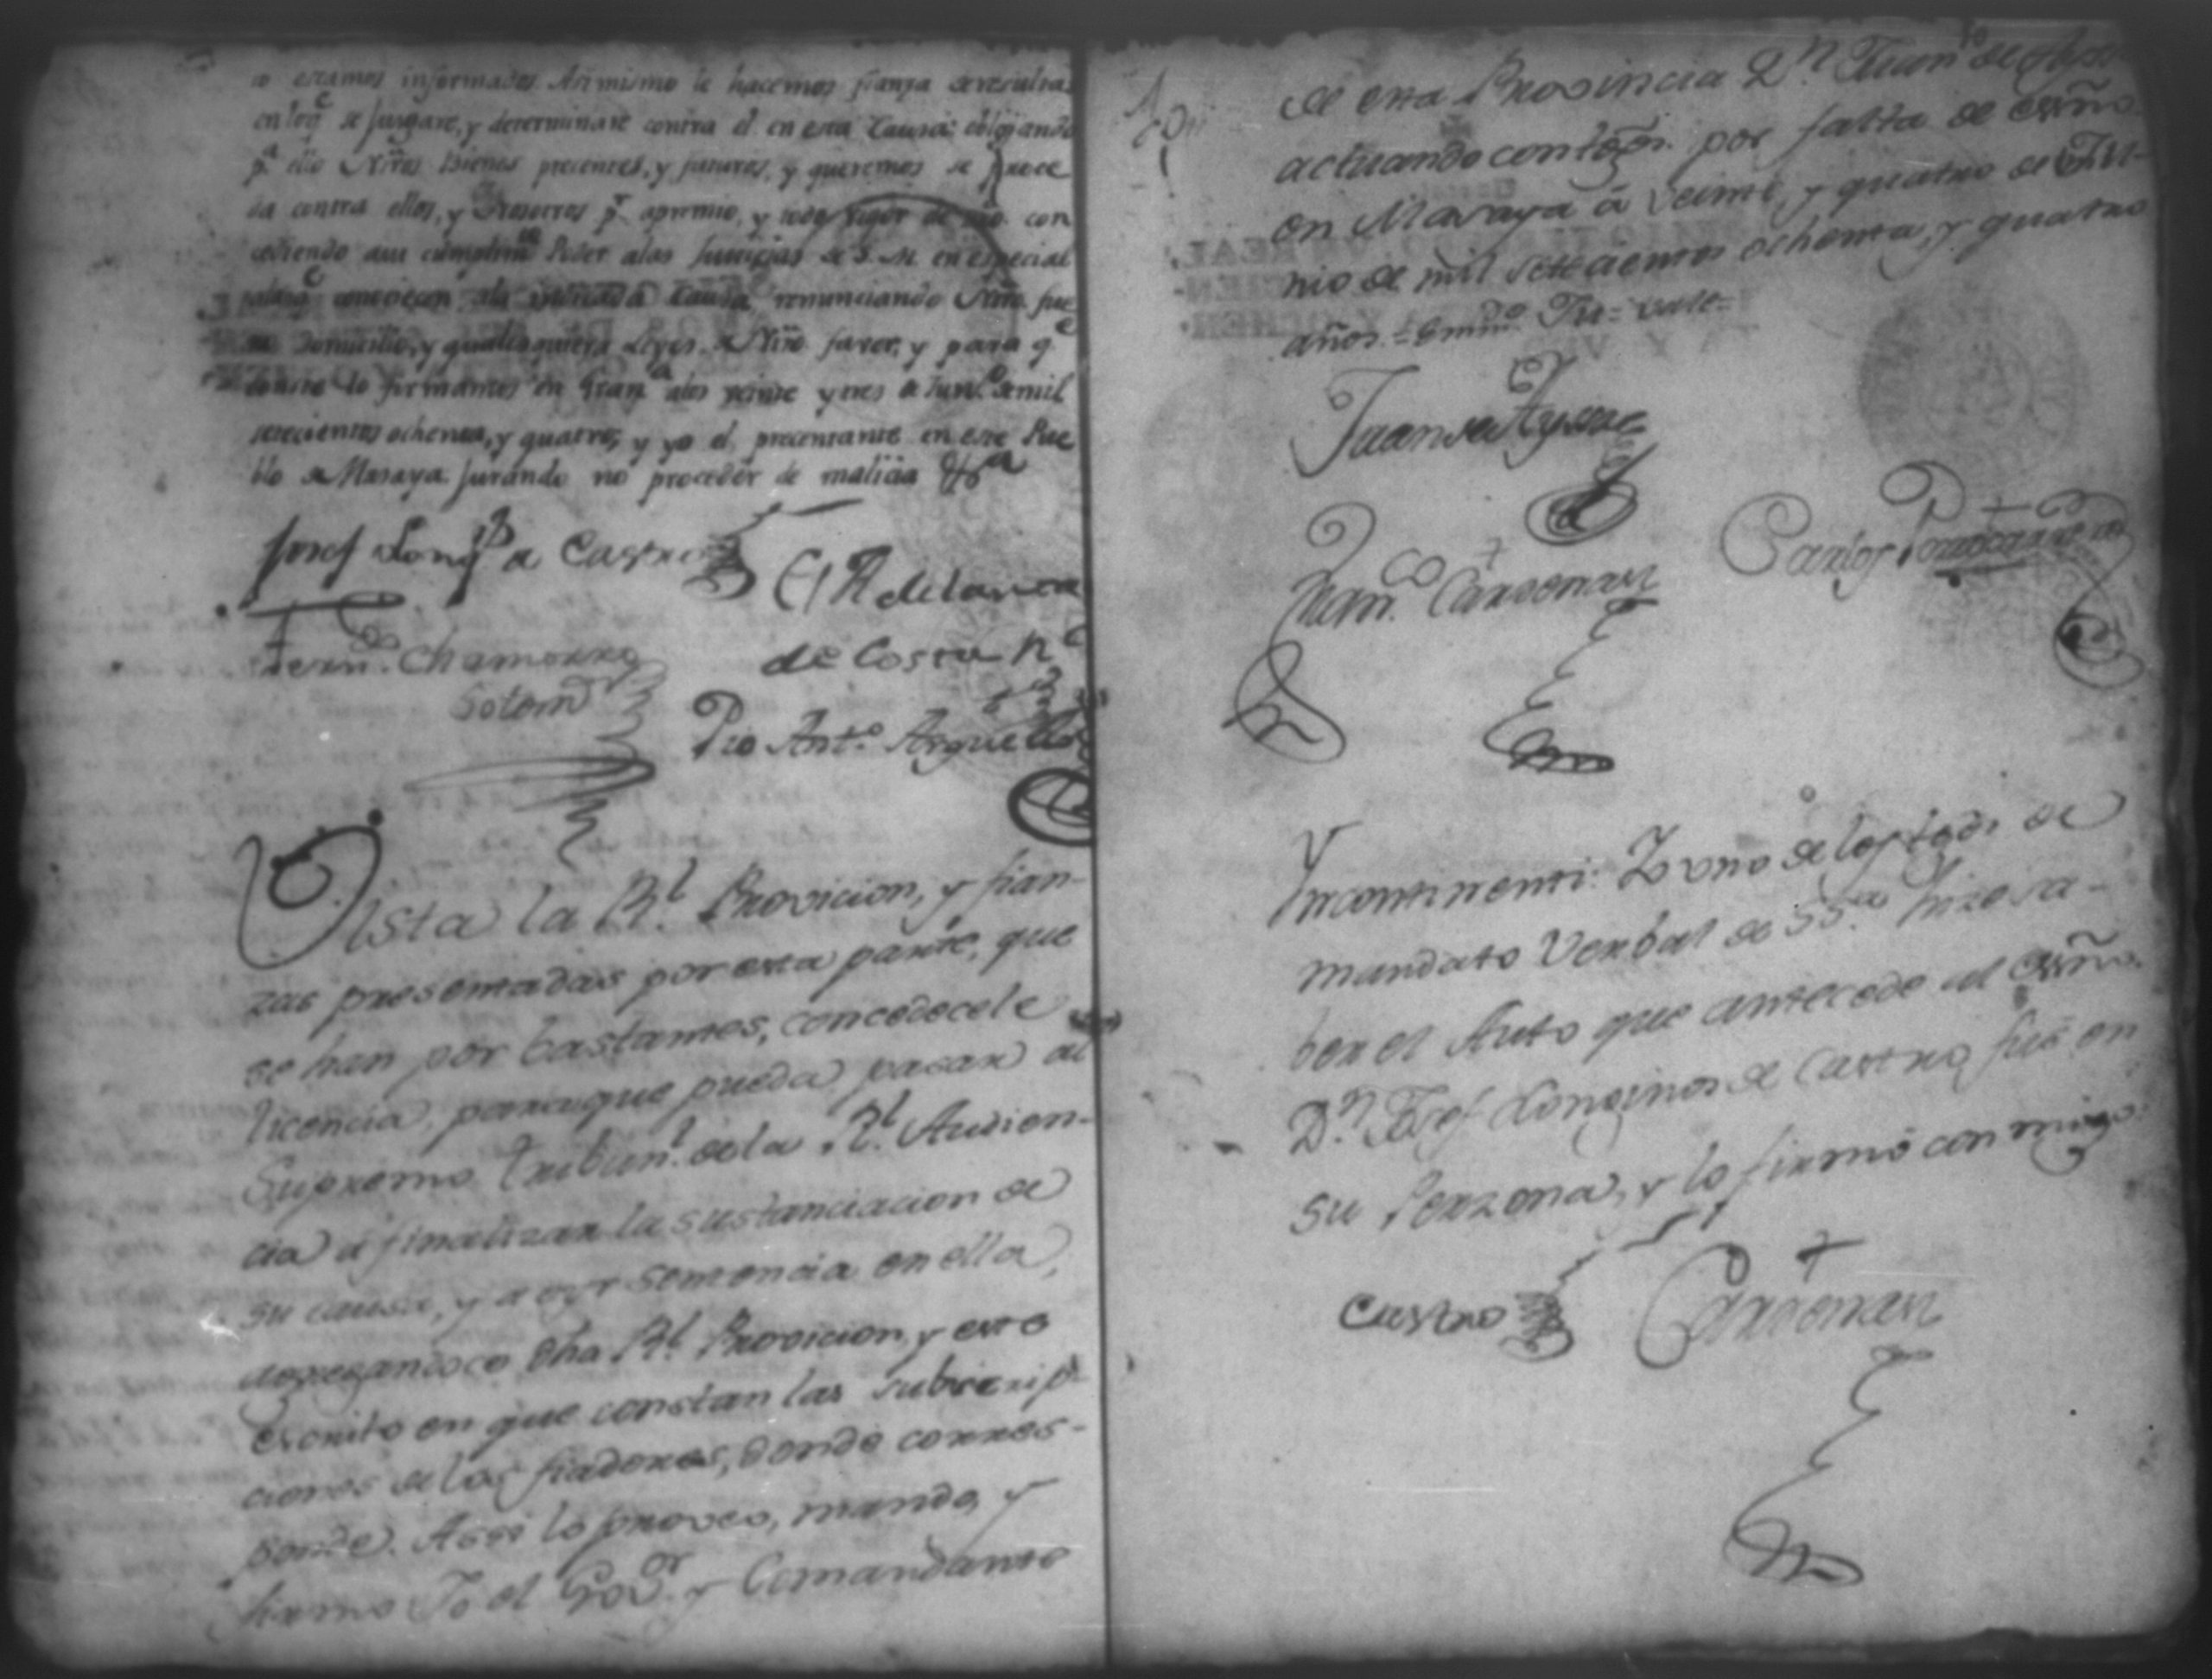 estamos informados. Asimismo le hacemos fianza de resultas
en lo q.e se jusgare, y determinare contra el en esta Causa: obligando
p.a ello Ntros Bienes precentes, y futuros, y queremos se proce
da contra ellos, y Nosotros p.r apremio, y todo rigor de dro. con
cediendo a su cumplim.to Poder a las Justicias de S. M. en especial
a las q.e conociecen de la indicada Causa renunciando Ntro. fue
ro Domicilio, y qualesquiera Leyes de Ntro. favor, y para q.e
conste lo firmamos en Gran.a a los veinte y tres de Jun.o de mil
setecientos ochenta, y quatro, y yo el precentante en este Pue
blo de Masaya. Jurando no proceder de malicia &.a
Josef Long.s de Castro
El A. de lantado
de Costa R.a
Fern.do Chamorro
Sotom.r
Pio Ant.o Arguello
Vista la R.l Provicion, y fian-
zas presentadas por esta parte, que
se han por bastantes, concedecele
licencia, para que pueda pasar al
Supremo Tribun.l de la R.l Audien-
cia á finalizar la sustanciacion de
su causa, y a oyr sentencia en ella,
agregandoce dha R.l Provicion, y este
escrito en que constan las subscrip-
ciones de los fiadores, donde corres-
ponde. Assi lo proveo, mando, y
firmo Yo el Gov.or y Comandante
de esta Provincia D.n Juan de Ayssa
actuando con tgos. por falta de essño.
en Masaya á veinte, y quatro de Ju-
nio de mil settecientos ochenta, y quatro
años. = Emm.do Ju = vale =
Juan de Ayssa
Fran.co Cardenas
Carlos
Yncontinenti: Yo uno de los tgos. de
mandato Verbal de SS.a hize sa-
ber el Auto que antecede al essño.
D.n Josef Longinos de Castro, fué en
su Perzona, y lo firmó con migo.
Castro
Cardenas